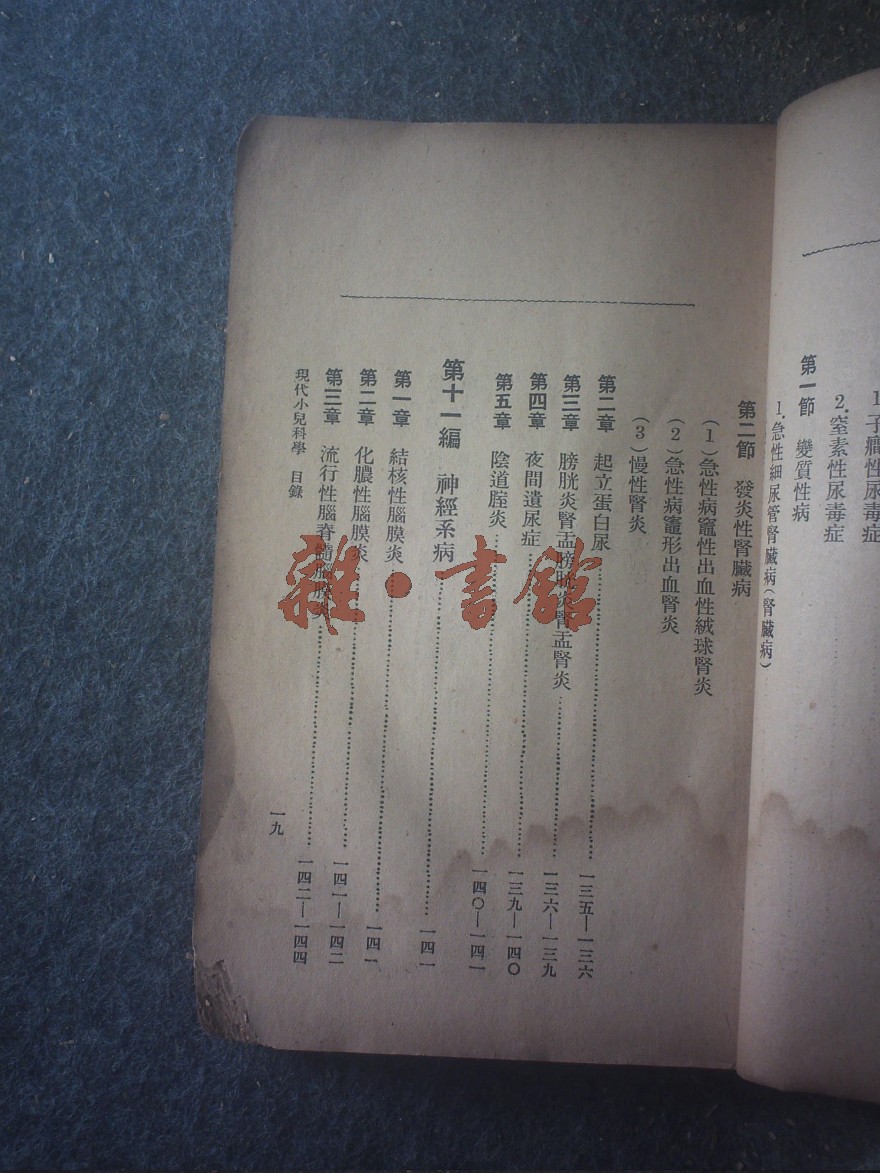 1.子癎性尿毒症
2.窒素性尿毒症
第一節 變質性病
1.急性細尿管腎臟病(腎臟病)
第二節 發炎性腎臟病
(1)急性病竈性出血性絨球腎炎
(2)急性病竈形出血腎炎
(3)慢性腎炎
第二章 起立蛋白尿……一三五—一三六
第三章 膀胱炎腎盂膀胱炎腎盂腎炎……一三六—一三九
第四章 夜間遺尿症……一三九—一四〇
第五章 陰道腟炎……一四〇—一四一
第十一編 神經系病……一四一
第一章 結核性腦膜炎……一四一
第二章 化膿性腦膜炎……一四一—一四二
第三章 流行性腦脊髓腦膜炎……一四二—一四四
現代小兒科學 目錄
一九
雜·書館